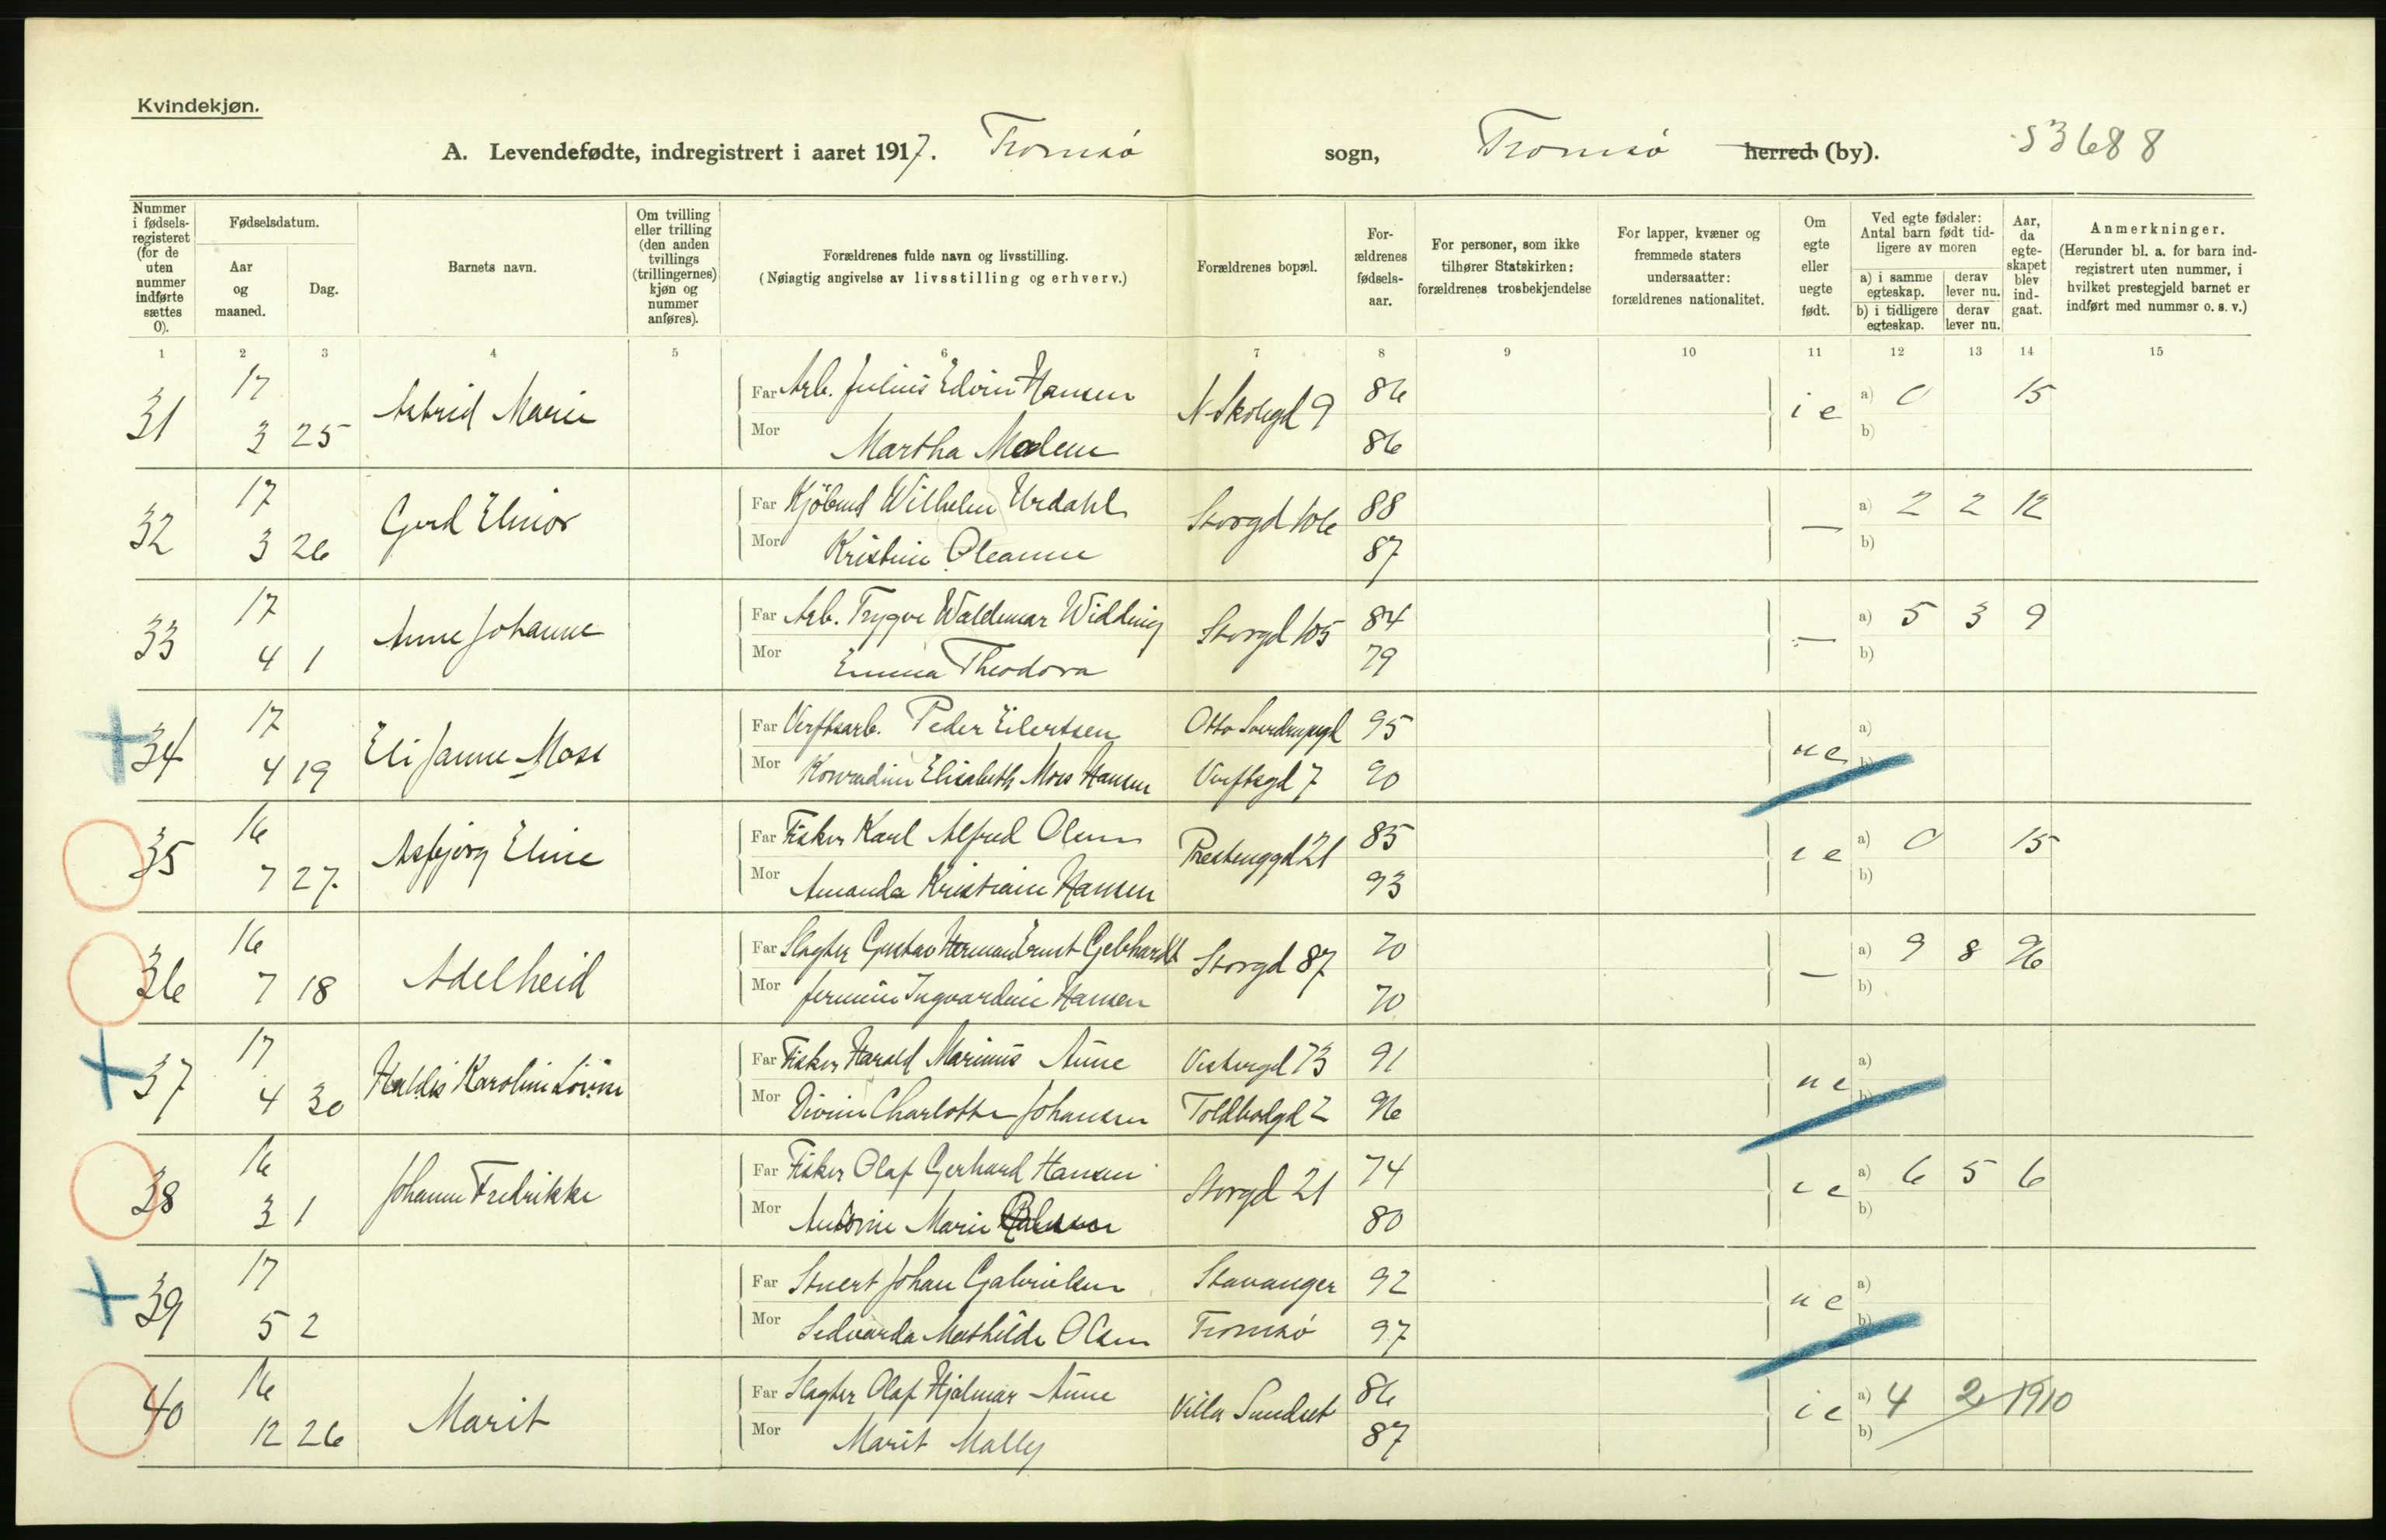 Kvindekjøn.
A. Levendefødte, indregistrert i aaret 1917. Tromsø sogn, Tromsø herred (by). 53688
Nummer i fødsels-registeret (for de uten nummer indførte sættes 0).
Fødselsdatum.
Aar og maaned.
Dag.
Barnets navn.
Om tvilling eller trilling (den anden tvillings (trillingernes) kjøn og nummer anføres).
Forældrenes fulde navn og livsstilling.
(Nøiagtig angivelse av livsstilling og erhverv.)
Forældrenes bopæl.
For-ældrenes fødsels-aar.
For personer, som ikke tilhører Statskirken: forældrenes trosbekjendelse
For lapper, kvæner og fremmede staters undersaatter: forældrenes nationalitet.
Om egte eller uegte født.
Ved egte fødsler: Antal barn født tid-ligere av moren
a) i samme egteskap. derav lever nu.
b) i tidligere egteskap. derav lever nu.
Aar, da egte-skapet blev ind-gaat.
Anmerkninger.
(Herunder bl. a. for barn ind-registrert uten nummer, i hvilket prestegjeld barnet er indført med nummer o. s. v.)
1 2 3 4 5 6 7 8 9 10 11 12 13 14 15
31 17 3 25 Astrid Marie Far Arb. Julius Edvin Hansen N. Skolegd 9 86 ie a) 0 15
Mor Martha Malene 86 b)
32 17 3 26 Gerd Elinor Far Kjöbmd Wilhelm Urdahl Storgd 106 88 — a) 2 2 12
Mor Kristine Oleanne 87 b)
33 17 4 1 Anne Johanne Far Arb. Trygve Waldemar Widding Storgd 105 84 — a) 5 3 9
Mor Emma Theodora 79 b)
34 17 4 19 Eli Janne Moss Far Verftsarb. Peder Eilertsen Otto Sverdrupsgd 95 ue a)
Mor Konradine Elisabeth Moss Hansen Verftsgd 7 90 b)
35 16 7 27. Asbjörg Eline Far Fisker Karl Alfred Olsen Prestenggd 21 85 ie a) 0 15
Mor Amanda Kristiane Hansen 93 b)
36 16 7 18 Adelheid Far Slagter Gustav Herman Ernst Gebhardt Storgd 87 70 — a) 9 8 96
Mor Jermine Ingvardine Hansen 70 b)
37 17 4 30 Haldis Karoline Lovise Far Fisker Harald Marinus Aune Vestergd 73 91 ue a)
Mor Divine Charlotte Johansen Toldbodgd 2 96 b)
38 16 3 1 Johanne Fredrikke Far Fisker Olaf Gerhard Hansen Storgd 21 74 ie a) 6 5 6
Mor Antonie Marie 80 b)
39 17 5 2 Far Stuert Johan Gabrielsen Stavanger 92 ue a)
Mor Sedvarda Mathilde Olsen Tromsø 97 b)
40 16 12 26 Marit Far Slagter Olaf Hjalmar Aune Villa Sundset 86 ie a) 4 2 1910
Mor Marit Mally 87 b)